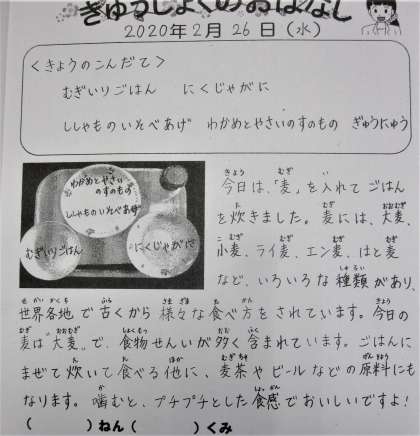 きゅうしょくのおはなし
2020年2月26日(水)
<きょうのこんだて>
むぎいりごはん　にくじゃがに
ししゃものいそべあげ　わかめとやさいのすのもの　ぎゅうにゅう
わかめとやさい
のすのもの
ししゃものいそべあげ
むぎいりごはん
にくじゃがに
今日は、「麦」を入れてごはん
を炊きました。麦には、大麦、
小麦、ライ麦、エン麦、はと麦
など、いろいろな種類があり、
世界各地で古くから様々な食べ方をされています。今日の
麦は“大麦”で、食物せんいが多く含まれています。ごはんに
まぜて炊いて食べる他に、麦茶やビールなどの原料にも
なります。噛むと、プチプチとした食感でおいしいですよ!
(　　　)ねん(　　　)くみ